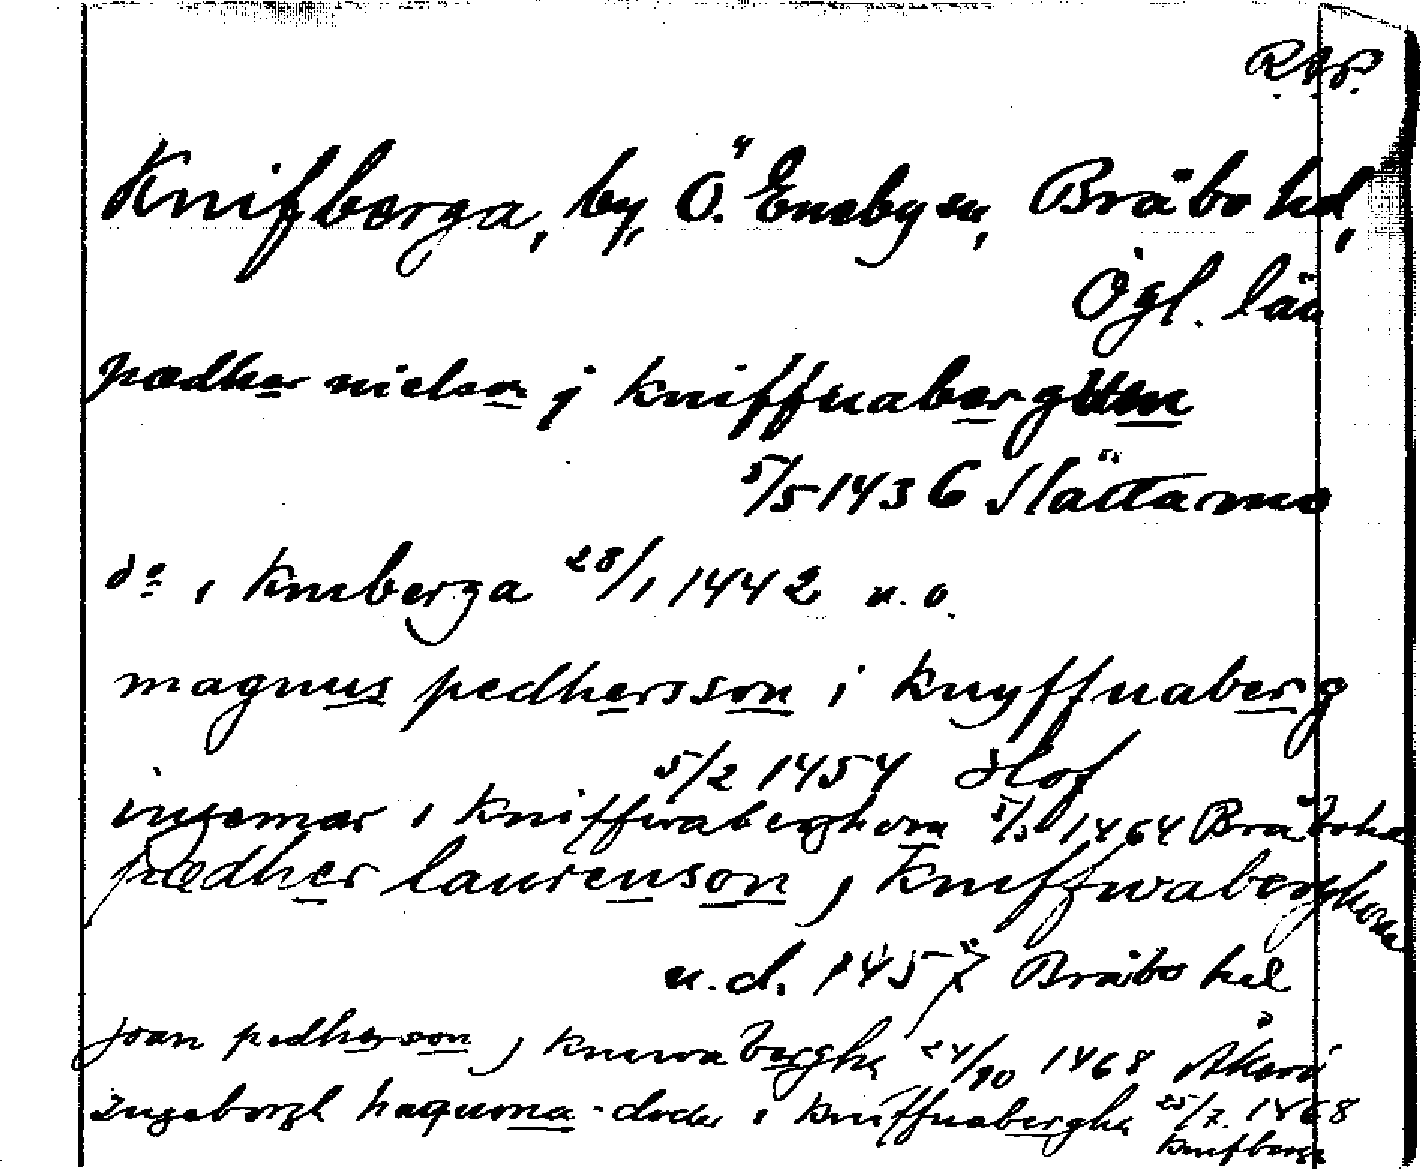 R.A.P.
Knifberga, by, Ö. Eneby sn, Bråbo hd,
Ögl. län
pædher nielson j kniffnaberg
5/5 1436 Slättamo
do i kniberga 28/1 1442 u. o.
magnus pedhersson i knyffnaberg
5/2 1454 Olof
ingemar i kniffwaberghom 5/5 1464 Bråbohd
pædher laurenson j kniffwaberghom
u.d. 1457 Bråbo hd
joan pedherson j kniwabergha 24/10 1468
ingeborgh haquona doder i kniffnabergha 25/7 1468
knifberga